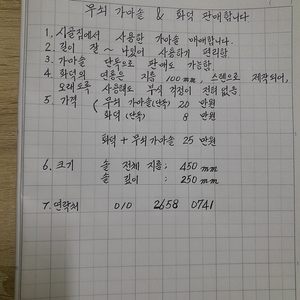 무쇠 가마솥 & 화덕 판매합니다
1. 시골집에서 사용한 가마솥 매매합니다.
2. 길이 잘~ 나있어 사용하기 편리함
3. 가마솥 단독으로 판매도 가능함.
4. 화덕의 연통은 지름 100mm, 스텐으로 제작되어,
오래도록 사용해도 부식 걱정이 전혀 없음.
5. 가격 ( 무쇠 가마솥(단독) 20 만원
화덕 (단독) 8 만원
화덕 + 무쇠가마솥 25 만원
6. 크기 솥 전체 지름: 450 mm
솥 깊이 : 250 mm
7. 연락처 010 2658 0741